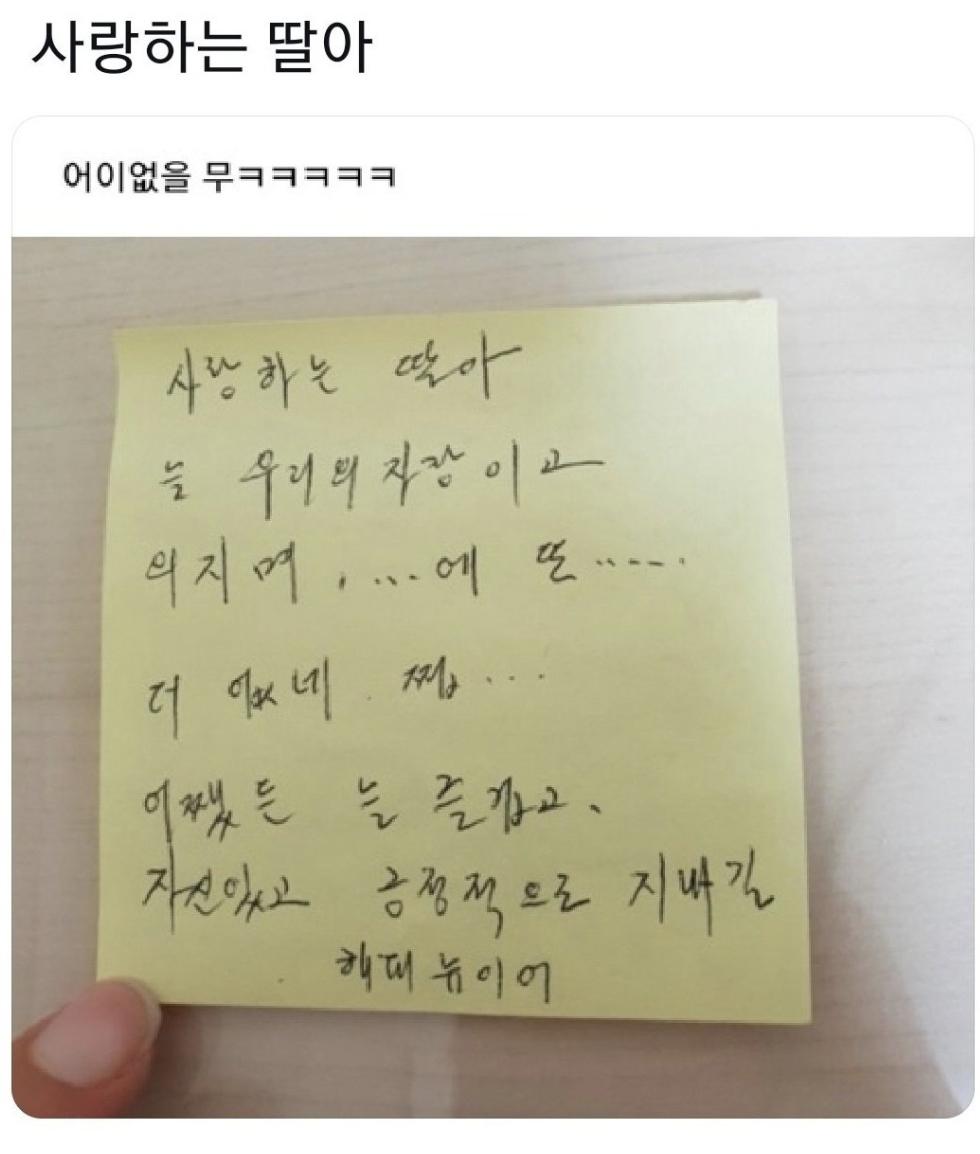 사랑하는 딸아
어이없을 무ㅋㅋㅋㅋㅋ
사랑하는 딸아
늘 우리의 자랑이고
의지며, ...에 또.....
더 없네. 쩝...
어쨌든 늘 즐겁고,
자신있고 긍정적으로 지내길
해피 뉴이어